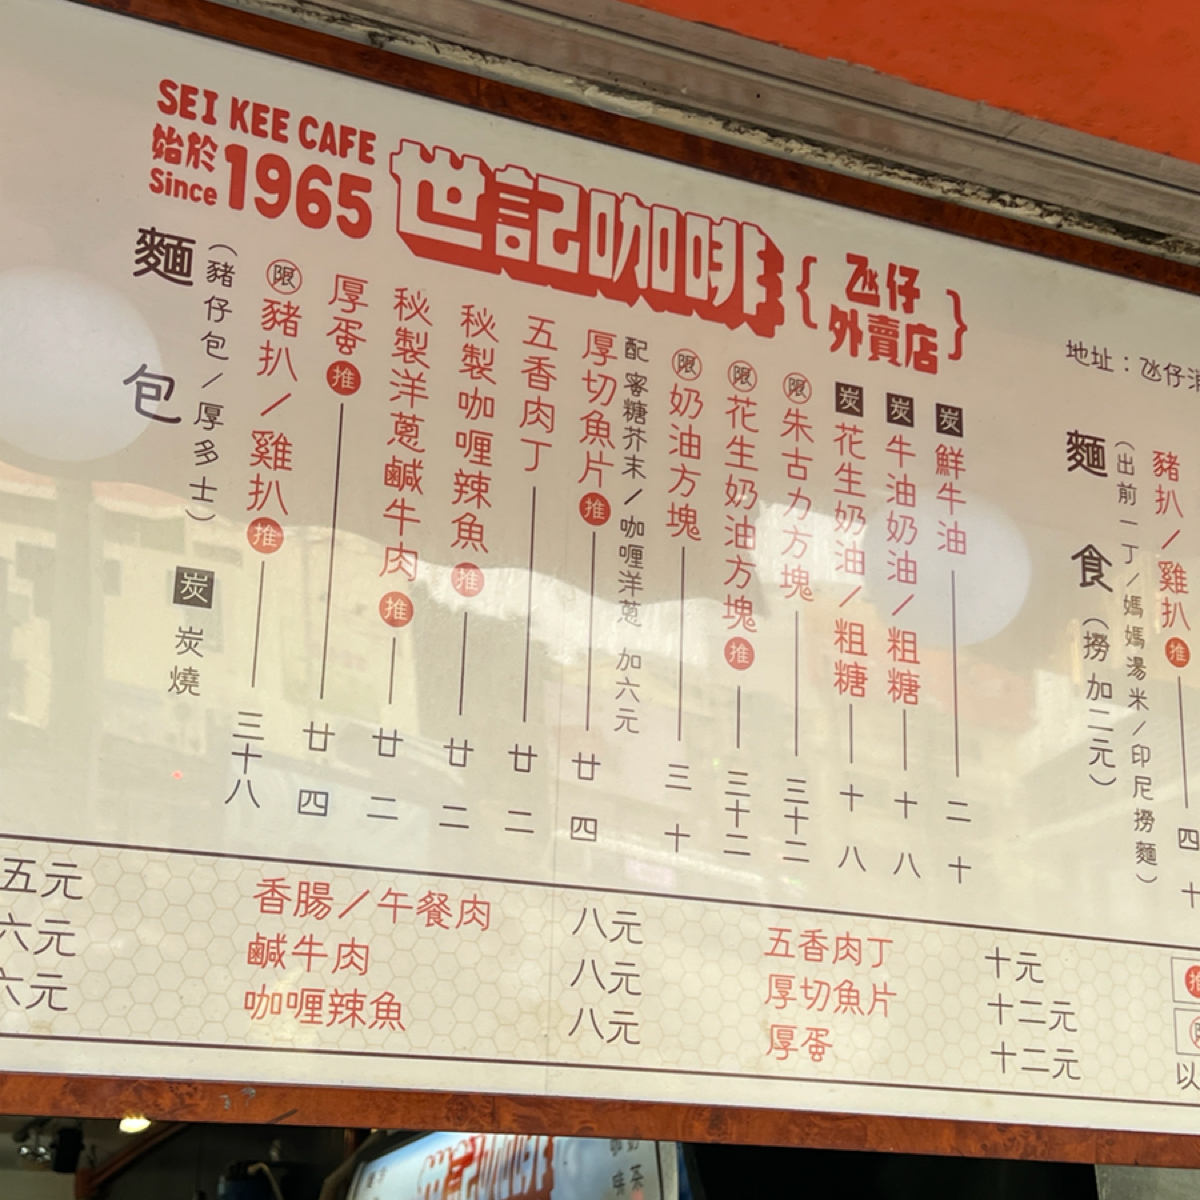 SEI KEE CAFE
始於
Since
1965
世記咖啡
{氹仔
外賣店}
地址：氹仔
麵包
（豬仔包／厚多士）
炭 炭燒
限 豬扒／雞扒 推 三十八
厚蛋 推 廿四
秘製洋蔥鹹牛肉 推 廿二
秘製咖喱辣魚 推 廿二
五香肉丁 廿二
厚切魚片 推 廿四
配 蜜糖芥末／咖喱洋蔥 加六元
限 奶油方塊 三十
限 花生奶油方塊 推 三十二
限 朱古力方塊 三十二
炭 花生奶油／粗糖 十八
炭 牛油奶油／粗糖 十八
炭 鮮牛油 二十
麵食（撈加二元）
（出前一丁／媽媽湯米／印尼撈麵）
豬扒／雞扒 推 四十
五元
六元
六元
香腸／午餐肉 八元
鹹牛肉 八元
咖喱辣魚 八元
五香肉丁 十元
厚切魚片 十二元
厚蛋 十二元
推
限
以